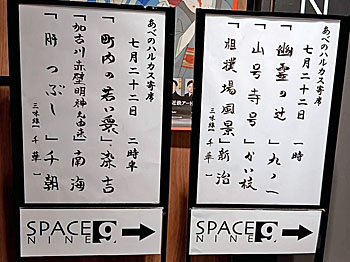 あべのハルカス寄席
七月二十二日　一時
「幽霊の辻」九ノ一
「山号寺号」かい枝
「相撲場風景」新治
三味線　千華
SPACE
NINE 9
あべのハルカス寄席
七月二十二日　二時半
「町内の若い衆」染吉
「加古川赤壁明神丸由来」南海
「肝つぶし」千朝
三味線　千華
SPACE
NINE 9